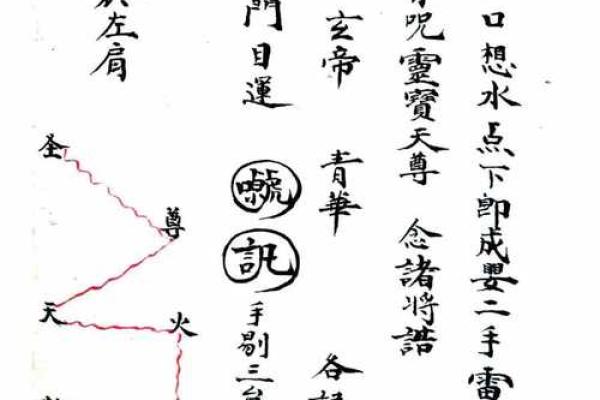 口想水点下即成嬰二手雷
咒靈寶天尊 念諸將誥
玄帝 青華 各
門目運 訊 手剔三台
於左肩
圣
尊
天
火